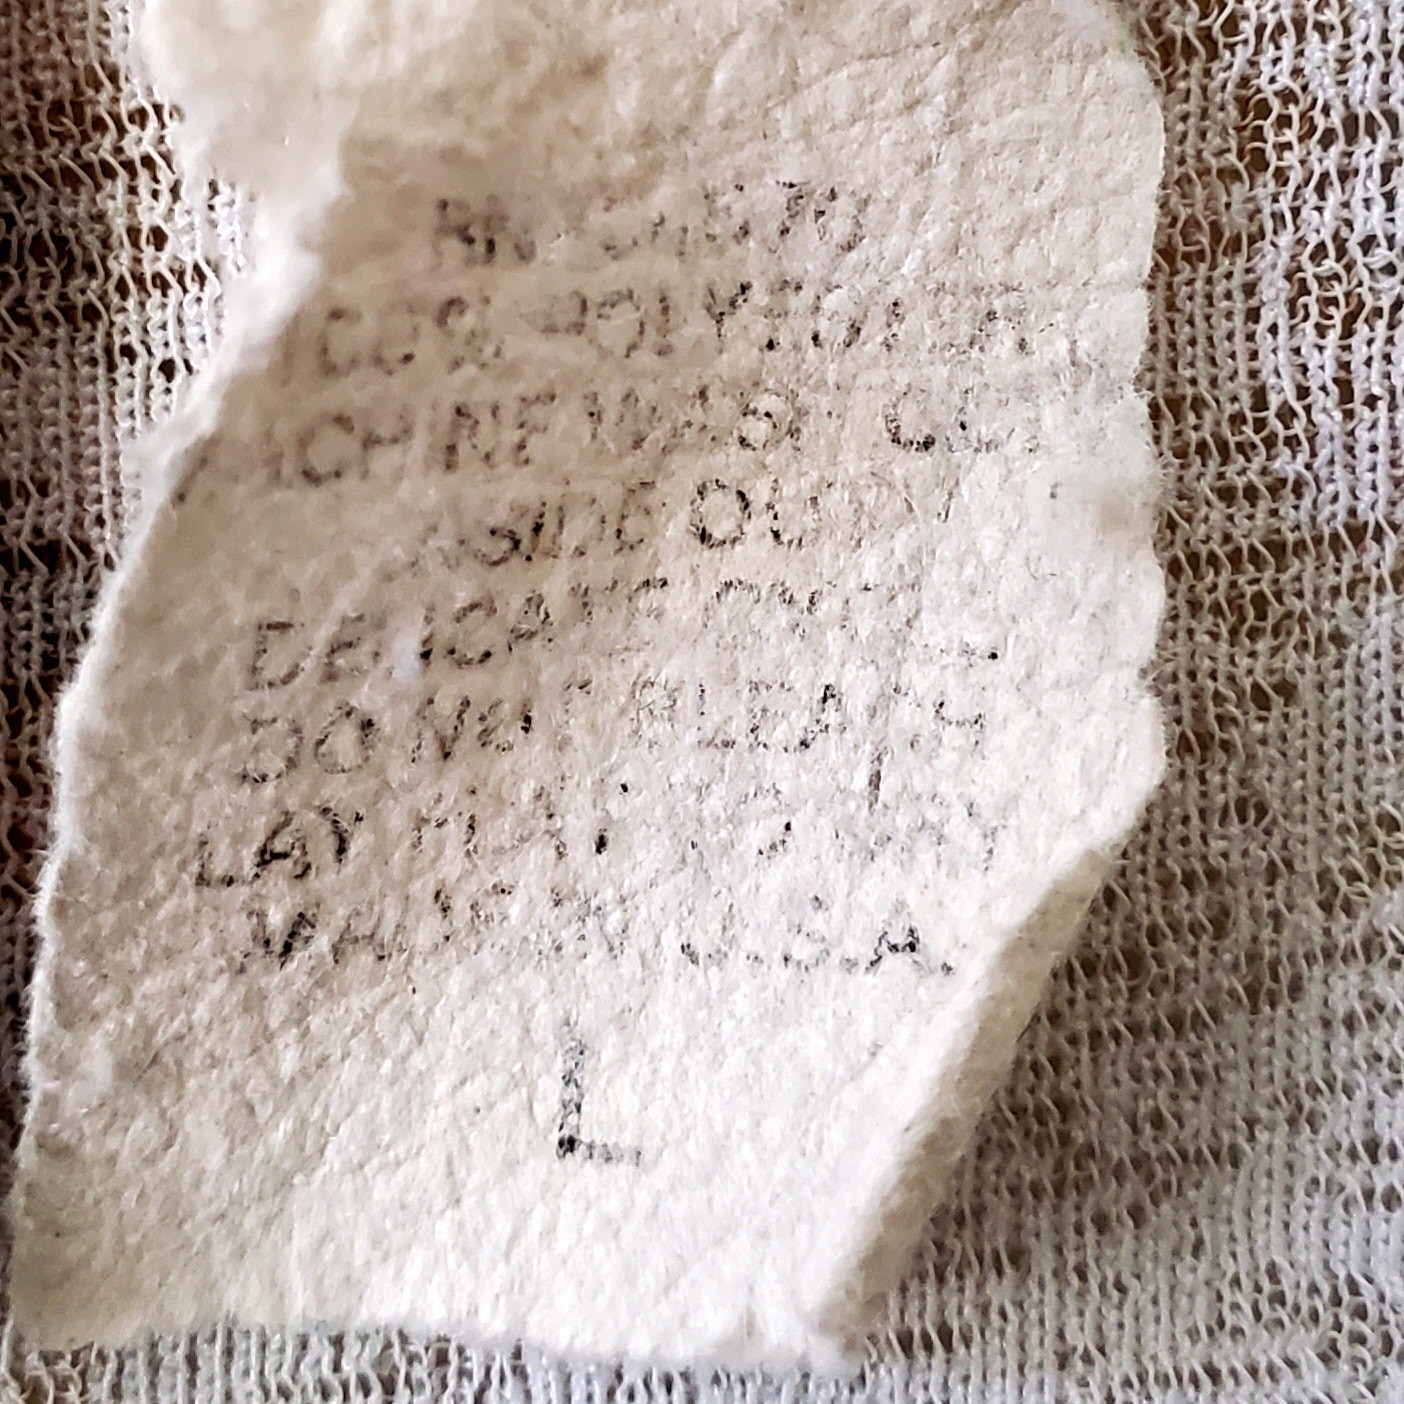 MACHINE WASH COLD
INSIDE OUT
DELICATE CYCLE
DO NOT BLEACH
LAY FLAT TO DRY
MADE IN U.S.A.
L